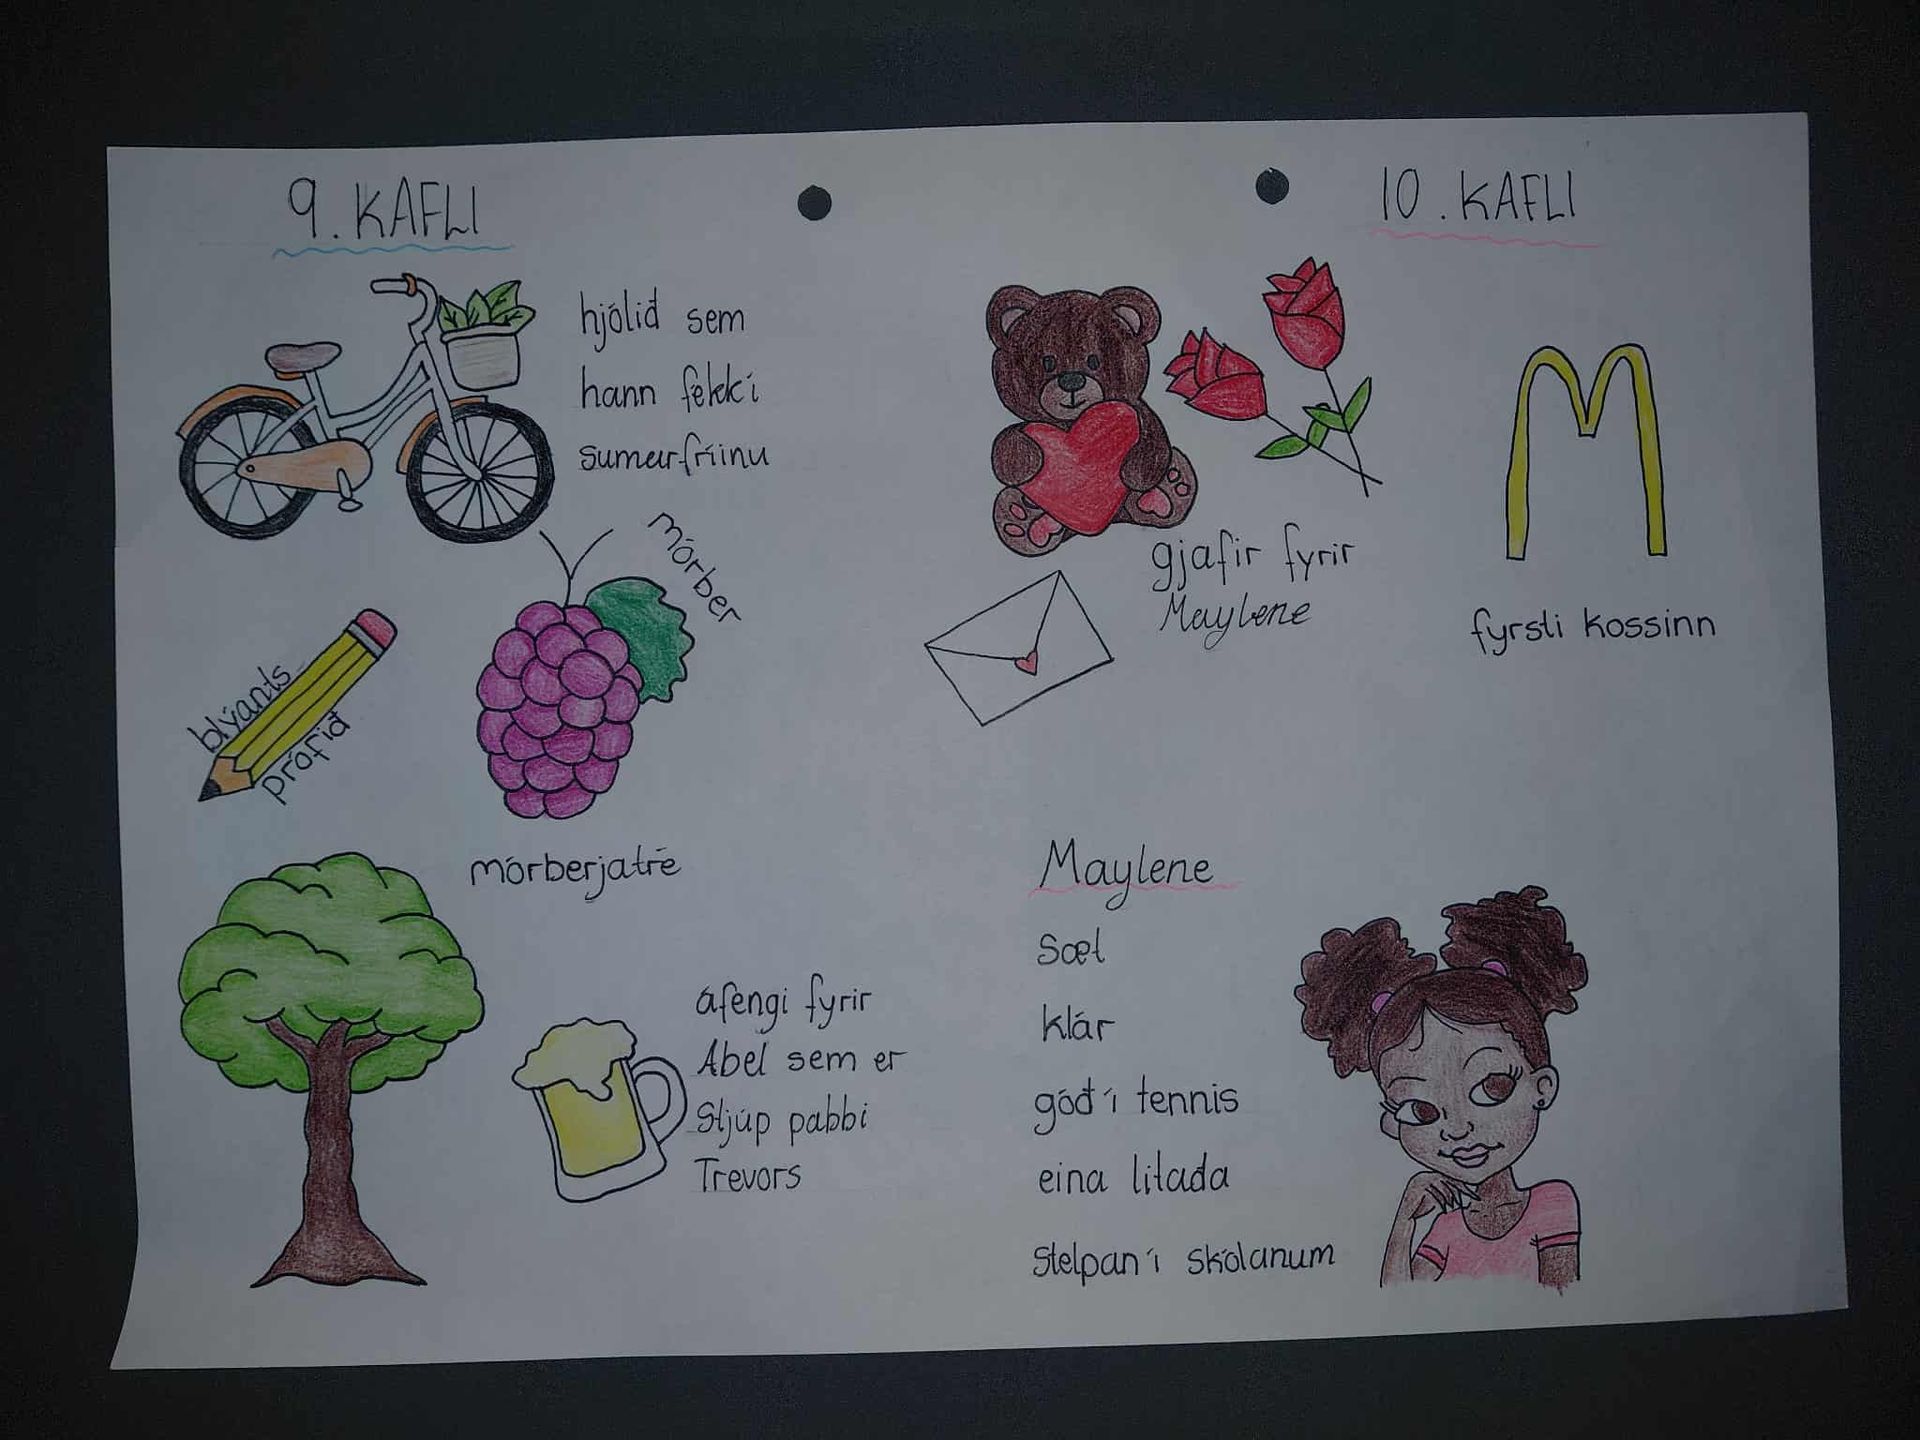 9. KAFLI
hjólið sem
hann fékk í
sumarfríinu
mórber
blýants
prófið
mórberjatré
áfengi fyrir
Abel sem er
Stjúp pabbi
Trevors
10. KAFLI
gjafir fyrir
Maylene
fyrsti kossinn
Maylene
Sæt
klár
góð í tennis
eina litaða
stelpan í skólanum